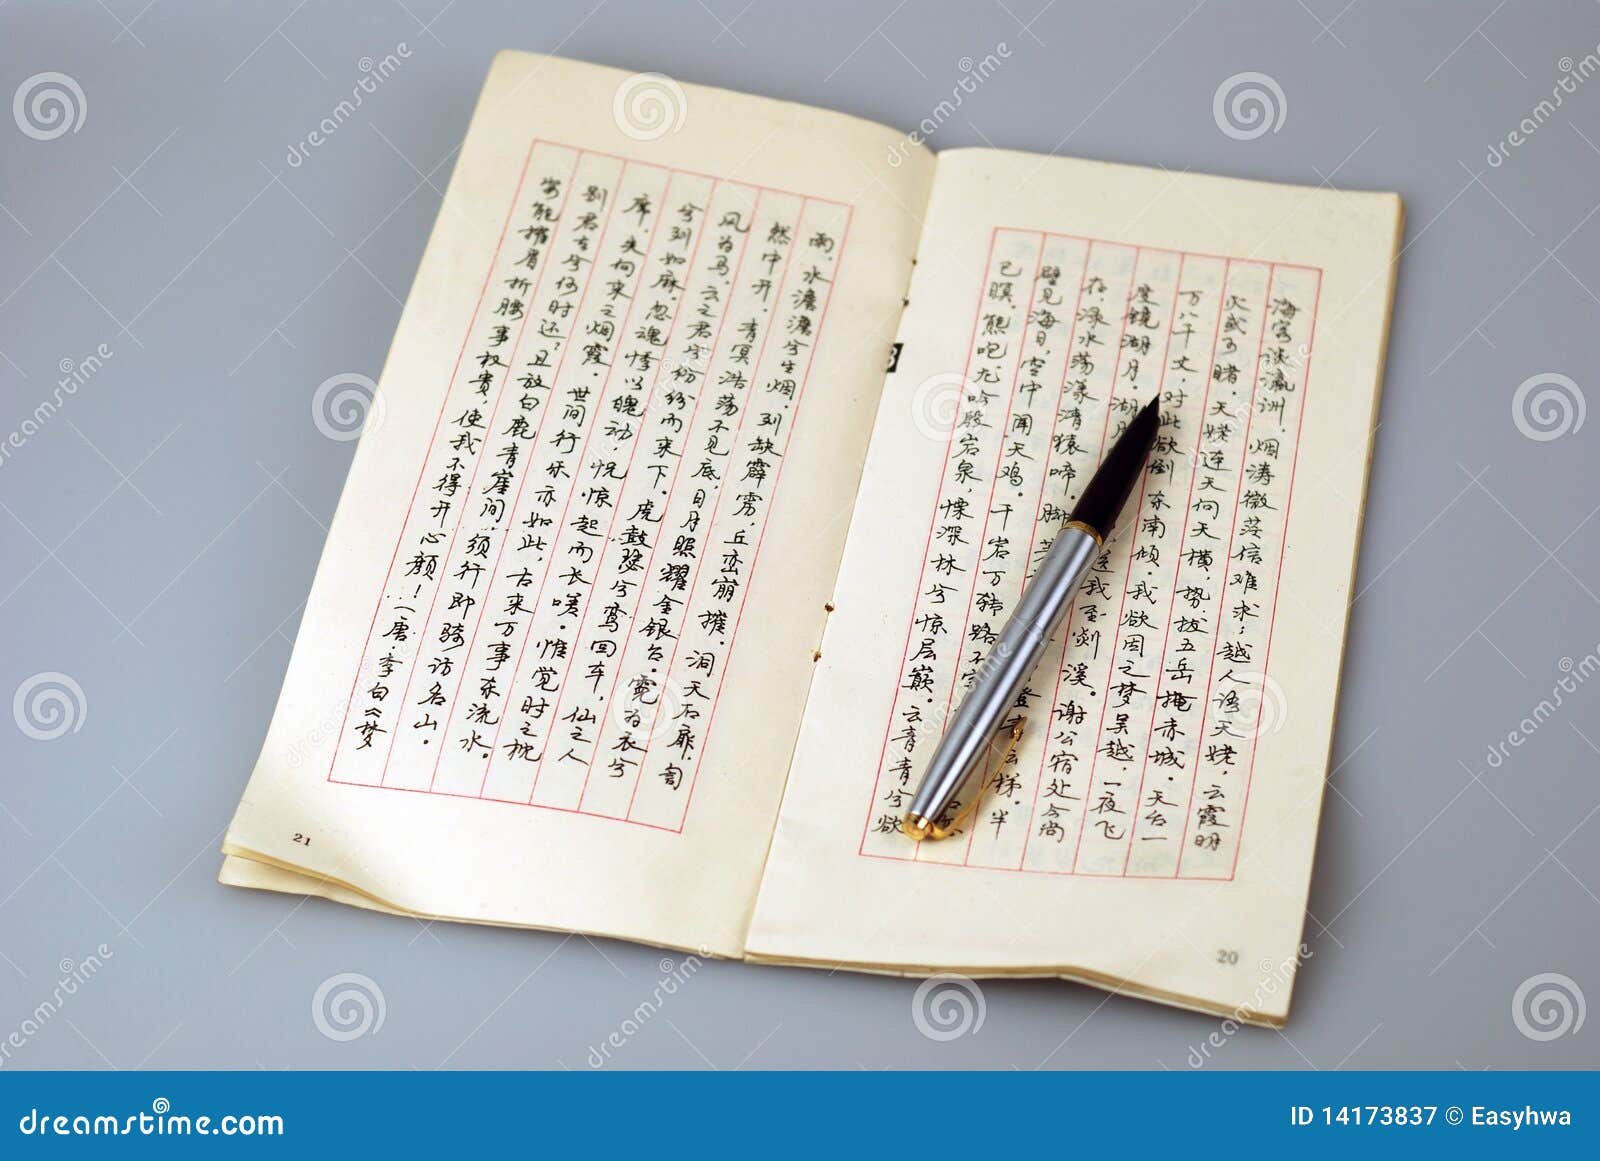 海客谈瀛洲，烟涛微茫信难求；越人语天姥，云霞明
灭或可睹。天姥连天向天横，势拔五岳掩赤城。天台一
万八千丈，对此欲倒东南倾。我欲因之梦吴越，一夜飞
度镜湖月。湖月 送我至剡溪。谢公宿处今尚
在，渌水荡漾清猿啼。脚 登青云梯。半
壁见海日，空中闻天鸡。千岩万转路不定
已暝。熊咆龙吟殷岩泉，慄深林兮惊层巅。云青青兮欲
20
雨，水澹澹兮生烟。列缺霹雳，丘峦崩摧。洞天石扉，訇
然中开。青冥浩荡不见底，日月照耀金银台。霓为衣兮
风为马，云之君兮纷纷而来下。虎鼓瑟兮鸾回车，仙之人
兮列如麻。忽魂悸以魄动，恍惊起而长嗟。惟觉时之枕
席，失向来之烟霞。世间行乐亦如此，古来万事东流水。
别君去兮何时还？且放白鹿青崖间，须行即骑访名山。
安能摧眉折腰事权贵，使我不得开心颜！（唐·李白《梦
21
dreamstime.com
ID 14173837 © Easyhwa